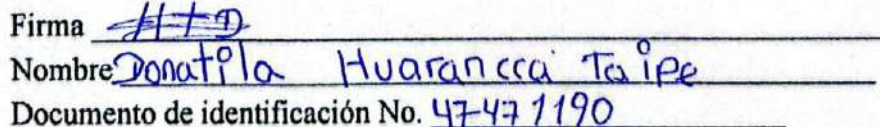 Firma HTD
Nombre Donatila Huarancca Taipe
Documento de identificación No. 47471190